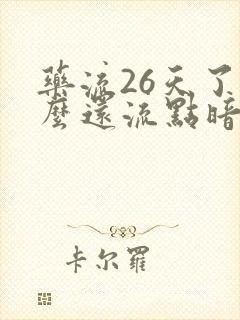 藥流26天了
麼還流點暗
卡尔羅